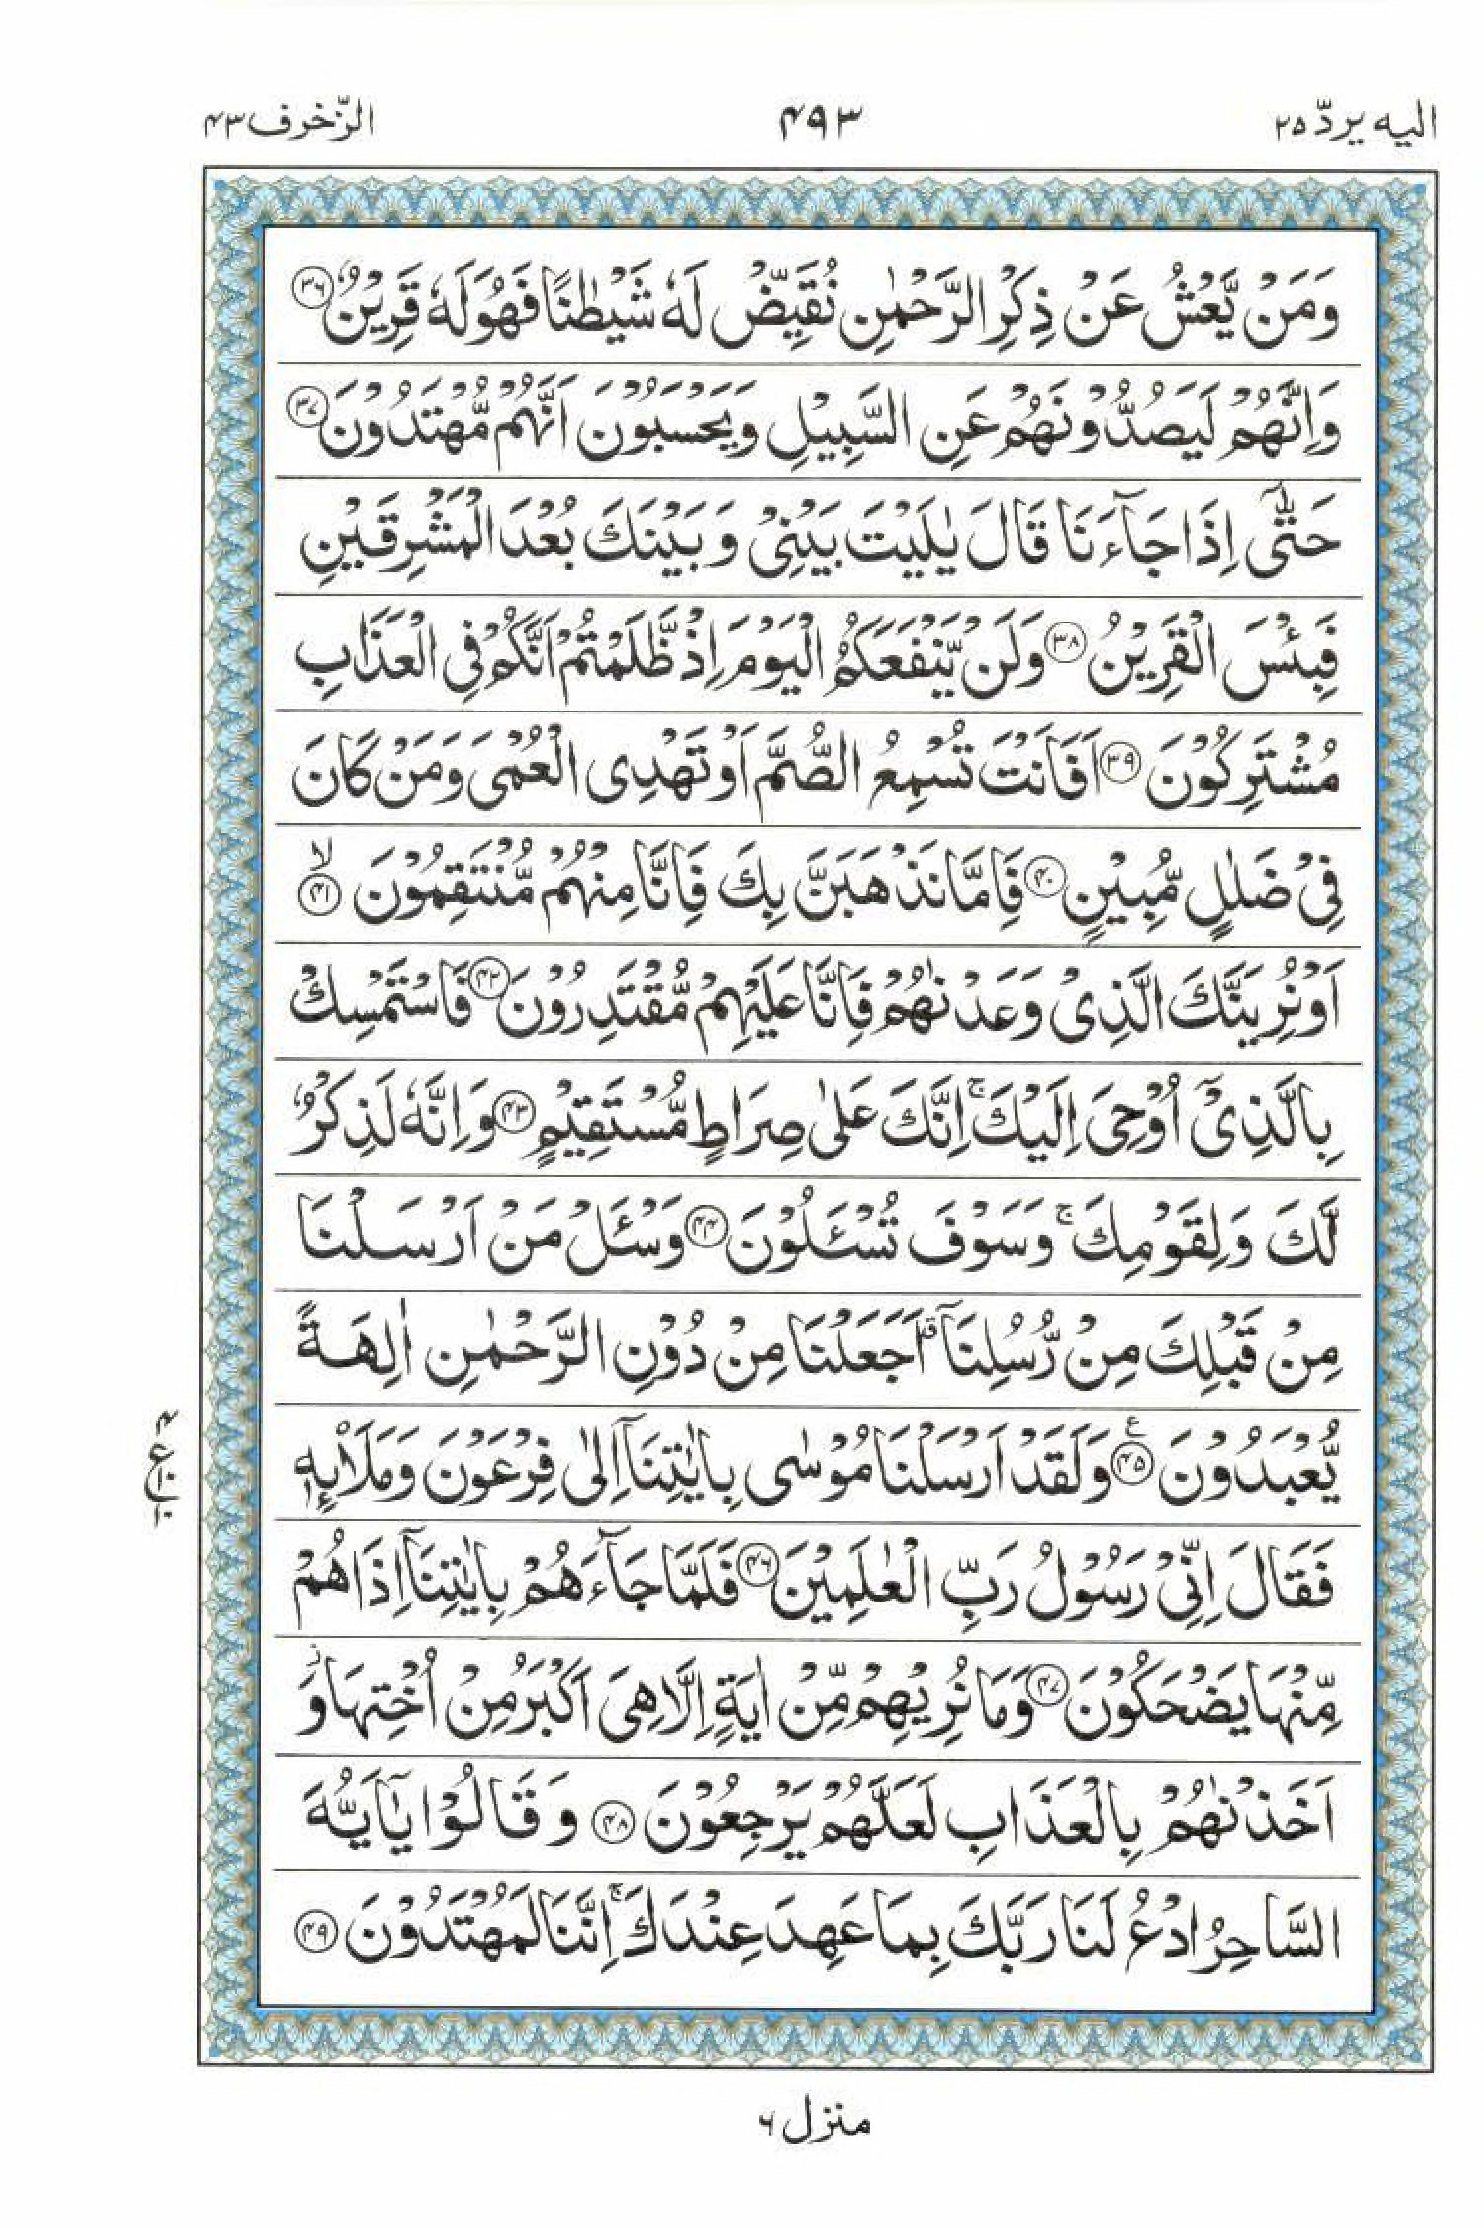 الیه یردّ ۲۵
۴۹۳
الزّخرف ۴۳
وَمَنْ يَّعْشُ عَنْ ذِكْرِ الرَّحْمٰنِ نُقَيِّضْ لَهٗ شَيْطٰنًا فَهُوَ لَهٗ قَرِيْنٌ ۳۶
وَاِنَّهُمْ لَيَصُدُّوْنَهُمْ عَنِ السَّبِيْلِ وَيَحْسَبُوْنَ اَنَّهُمْ مُّهْتَدُوْنَ ۳۷
حَتّٰۤى اِذَا جَآءَنَا قَالَ يٰلَيْتَ بَيْنِيْ وَبَيْنَكَ بُعْدَ الْمَشْرِقَيْنِ
فَبِئْسَ الْقَرِيْنُ ۳۸ وَلَنْ يَّنْفَعَكُمُ الْيَوْمَ اِذْ ظَّلَمْتُمْ اَنَّكُمْ فِي الْعَذَابِ
مُشْتَرِكُوْنَ ۳۹ اَفَاَنْتَ تُسْمِعُ الصُّمَّ اَوْ تَهْدِى الْعُمْيَ وَمَنْ كَانَ
فِيْ ضَلٰلٍ مُّبِيْنٍ ۴۰ فَاِمَّا نَذْهَبَنَّ بِكَ فَاِنَّا مِنْهُمْ مُّنْتَقِمُوْنَ ۙ ۴۱
اَوْ نُرِيَنَّكَ الَّذِيْ وَعَدْنٰهُمْ فَاِنَّا عَلَيْهِمْ مُّقْتَدِرُوْنَ ۴۲ فَاسْتَمْسِكْ
بِالَّذِيْۤ اُوْحِيَ اِلَيْكَ ۚ اِنَّكَ عَلٰى صِرَاطٍ مُّسْتَقِيْمٍ ۴۳ وَاِنَّهٗ لَذِكْرٌ
لَّكَ وَلِقَوْمِكَ ۚ وَسَوْفَ تُسْـَٔلُوْنَ ۴۴ وَسْـَٔلْ مَنْ اَرْسَلْنَا
مِنْ قَبْلِكَ مِنْ رُّسُلِنَاۤ اَجَعَلْنَا مِنْ دُوْنِ الرَّحْمٰنِ اٰلِهَةً
يُّعْبَدُوْنَ ۴۵ ع وَلَقَدْ اَرْسَلْنَا مُوْسٰى بِاٰيٰتِنَاۤ اِلٰى فِرْعَوْنَ وَمَلَا۟ئِهٖ
فَقَالَ اِنِّيْ رَسُوْلُ رَبِّ الْعٰلَمِيْنَ ۴۶ فَلَمَّا جَآءَهُمْ بِاٰيٰتِنَاۤ اِذَا هُمْ
مِّنْهَا يَضْحَكُوْنَ ۴۷ وَمَا نُرِيْهِمْ مِّنْ اٰيَةٍ اِلَّا هِيَ اَكْبَرُ مِنْ اُخْتِهَا ۡ وَ
اَخَذْنٰهُمْ بِالْعَذَابِ لَعَلَّهُمْ يَرْجِعُوْنَ ۴۸ وَقَالُوْا يٰۤاَيُّهَ
السَّاحِرُ ادْعُ لَنَا رَبَّكَ بِمَا عَهِدَ عِنْدَكَ ۚ اِنَّنَا لَمُهْتَدُوْنَ ۴۹
۴
ع
۱۰
۱۰
منزل ۶